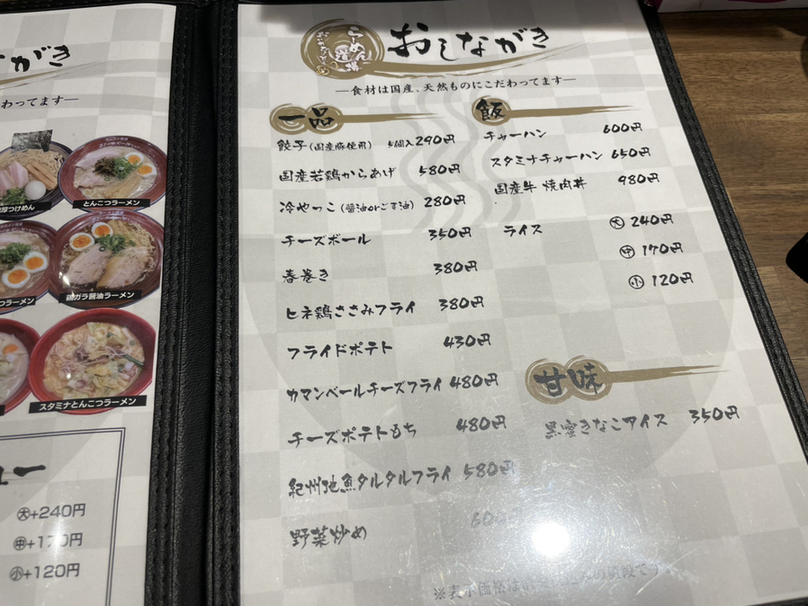 ながき
わってます―
厚つけめん
とんこつラーメン
鶏ガラ醤油ラーメン
スタミナとんこつラーメン
ュー
大+240円
中+170円
小+120円
らーめん
おしながき
―食材は国産、天然ものにこだわってます―
一品
餃子(国産豚使用) 5個入290円
国産若鶏からあげ 580円
冷やっこ(醤油orごま油) 280円
チーズボール 350円
春巻き 380円
ヒネ鶏ささみフライ 380円
フライドポテト 430円
カマンベールチーズフライ 480円
チーズポテトもち 480円
紀州地魚タルタルフライ 580円
野菜炒め
飯
チャーハン 600円
スタミナチャーハン 650円
国産牛 焼肉丼 980円
ライス 大 240円
中 170円
小 120円
甘味
黒蜜きなこアイス 350円
※表示価格は